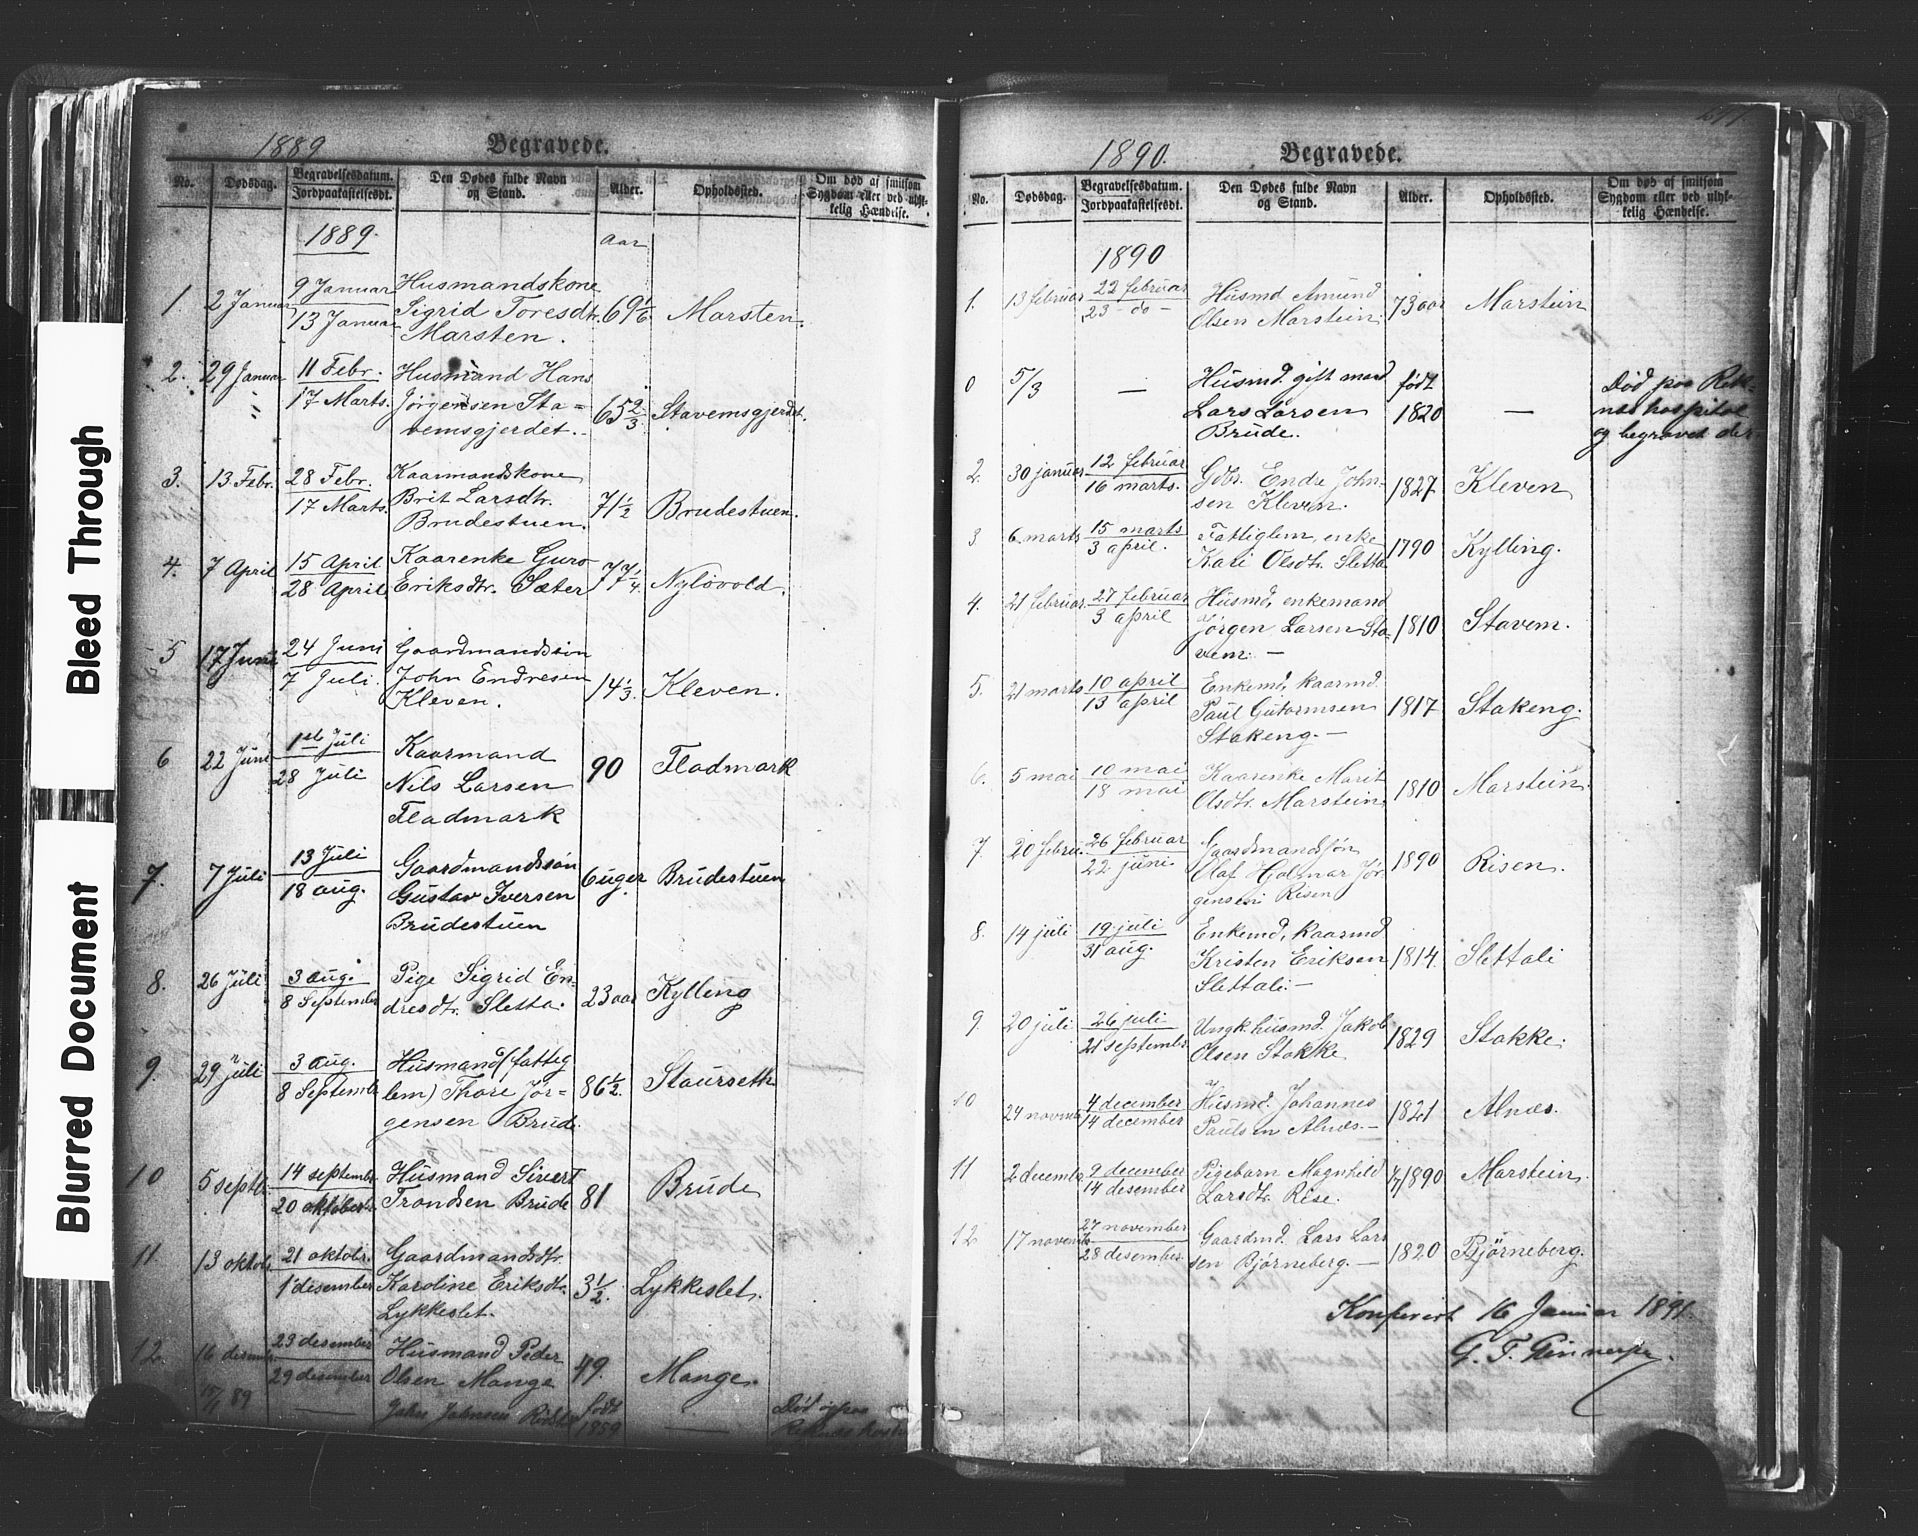 Bleed Through
Blurred Document
1889 Begravede.
No. Dødsdag. Begravelsesdatum. Jordpaakastelsesdt. Den Dødes fulde Navn og Stand. Alder. Opholdssted. Om død af smitsom Sygdom eller ved ulykkelig Hændelse.
1889. aar
1. 2 Januar 9 Januar Husmandskone
13 Januar Sigrid Toresdtr. 69 1/6 Marsten.
Marsten.
2. 29 Januar 11 Febr. Husmand Hans
17 Marts. Jørgensen Sta= 65 2/3 Stavemsgjerdet.
vemsgjerdet.
3. 13 Febr. 28 Febr. Kaarmandskone
17 Marts. Brit Larsdtr. 71 1/2 Brudestuen.
Brudestuen.
4. 7 April 15 April Kaarenke Guro
28 April Eriksdtr. Sæter 77 1/4. Nyløvold.
5 17 Juni 24 Juni Gaardmandssøn
7 Juli. John Endresen 14 1/3. Kleven.
Kleven.
6 22 Juni 1ste Juli Kaarmand
28 Juli Nils Larsen 90 Fladmark
Fladmark
7. 7 Juli 13 Juli Gaardmandssøn
18 aug. Gustav Iversen 6 uger Brudestuen
Brudestuen
8. 26 Juli 3 aug. Pige Sigrid En-
8 September dresdtr. Sletta. 23 aar Kylling
9. 29 juli 3 aug. Husmand (fattig
8 Septembr lem) Thore Jør- 86 1/2. Staurseth
gensen Brude.
10 5 septb. 14 septembr Husmand Sivert
20 oktober Trondsen Brude 81 Brude
11. 13 oktob. 21 oktobr. Gaardmandsdtr.
1 desember Karoline Eriksdtr. 3 1/2. Lykkeslet.
Lykkeslet.
12. 16 desmbr. 23 desember Husmand Peder
29 desember Olsen Mange 49. Mange.
89 — John Johnsen født 1859 — Død

1890. Begravede.
No. Dødsdag. Begravelsesdatum. Jordpaakastelsesdt. Den Dødes fulde Navn og Stand. Alder. Opholdssted. Om død af smitsom Sygdom eller ved ulykkelig Hændelse.
1890
1. 13 februar 22 februar Husmd Amund
23 - do - Olsen Marstein. 73 aar Marstein
0 5/3 — Husmd. gift mand født Død paa Rek-
Lars Larsen 1820 — næs hospital
Brude. og begravet der
2. 30 januar 12 februar Gdbr. Endre John-
16 marts. sen Kleven. 1827. Kleven
3 6 marts 15 marts Fattiglem, enke
3 april. Kari Olsdtr. Sletta 1790 Kylling.
4. 21 februar. 27 februar Husmd, enkemand
3 april Jørgen Larsen Sta- 1810 Stavem.
vem. —
5. 21 marts 10 april Enkemd, kaarmd.
13 april Paul Gutormsen 1817 Stakeng.
Stakeng. —
6. 5 mai 10 mai Kaarenke Marit
18 mai Olsdtr. Marstein 1810 Marstein.
7. 20 febru. 26 februar Gaardmandssøn
22 juni. Olaf Hjalmar Jør- 1890 Risen.
gensen Risen
8. 14 juli 19 juli Enkemd, kaarmd
31 aug. Kristen Eriksen 1814. Slettali
Slettali. —
9. 20 juli 26 juli Ungk. husmd. Jakob
21 septembr Olsen Stokke 1829 Stokke.
10 24 novembr 4 december Husmd. Johannes
14 december Paulsen Alnæs. — 1821 Alnæs.
11 2 decembr 9 december Pigebarn Magnhild
14 desember Larsdtr. Rise. 4/7 1890 Marstein.
12 17 novemb. 27 november Gaardmd. Lars Lar-
28 desember. sen Bjørneberg. — 1820 Bjørneberg.
Konfereret 16 Januar 1891.